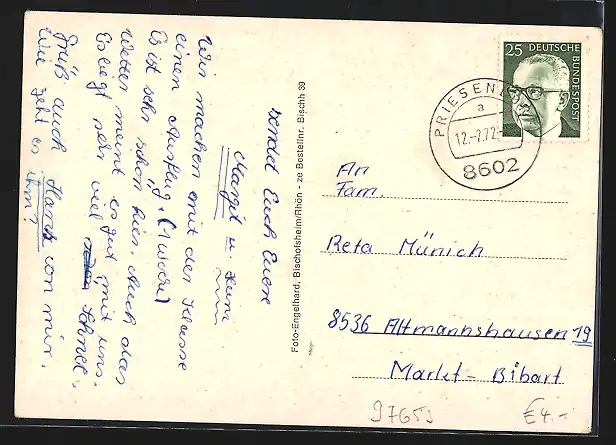 Wir machen mit der Klasse
einen Ausflug. (1 Woche)
Es ist sehr schön hier. Auch das
Wetter meint es gut mit uns.
Es liegt sehr viel Schnee.
Grüß auch Hans von mir.
Wie geht es ihm?
sendet Euch Eure
Margit u.
Foto-Engelhard, Bischofsheim/Rhön - ze Bestellnr. Bischh 39
25 DEUTSCHE
BUNDESPOST
PRIESEN
a
12.-2.72
8602
An
Fam.
Reta Münich
8536 Altmannshausen 19
Markt-Bibart
97653
€4.-